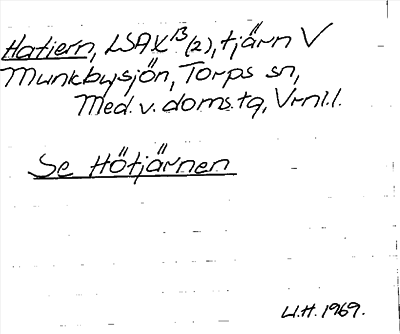 Hatiern, LSA X¹³ (2), tjärn V
Munkbysjön, Torps sn,
Med. v. doms. tg, Vrnl.l.
Se Hötjärnen
U.H. 1969.